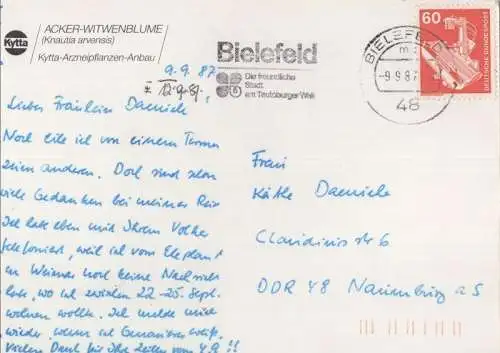 Kytta
ACKER-WITWENBLUME
(Knautia arvensis)
Kytta-Arzneipflanzen-Anbau
Bielefeld
Die freundliche
Stadt
am Teutoburger Wald
BIELEFELD
-9.9.87
48
60
DEUTSCHE BUNDESPOST
9.9.87
* 12.9.87
Lieber Fräulein
Noch eile ich von einem Termin
zum anderen. Doch sind schon
viele Gedanken bei meiner Reise
Ich habe eben mit Ihrem Volker
telefoniert, weil ich vom Elephant
in Weimar noch keine Nachricht
habe, wo ich zwischen 22.-25. Sept.
wohnen sollte. Ich melde mich
wieder, wenn ich Genaueres weiß.
Vielen Dank für Ihre Zeilen vom 4.9.!!
Frau
Käthe
Claudiusstr 6
DDR 48 Naumburg a S